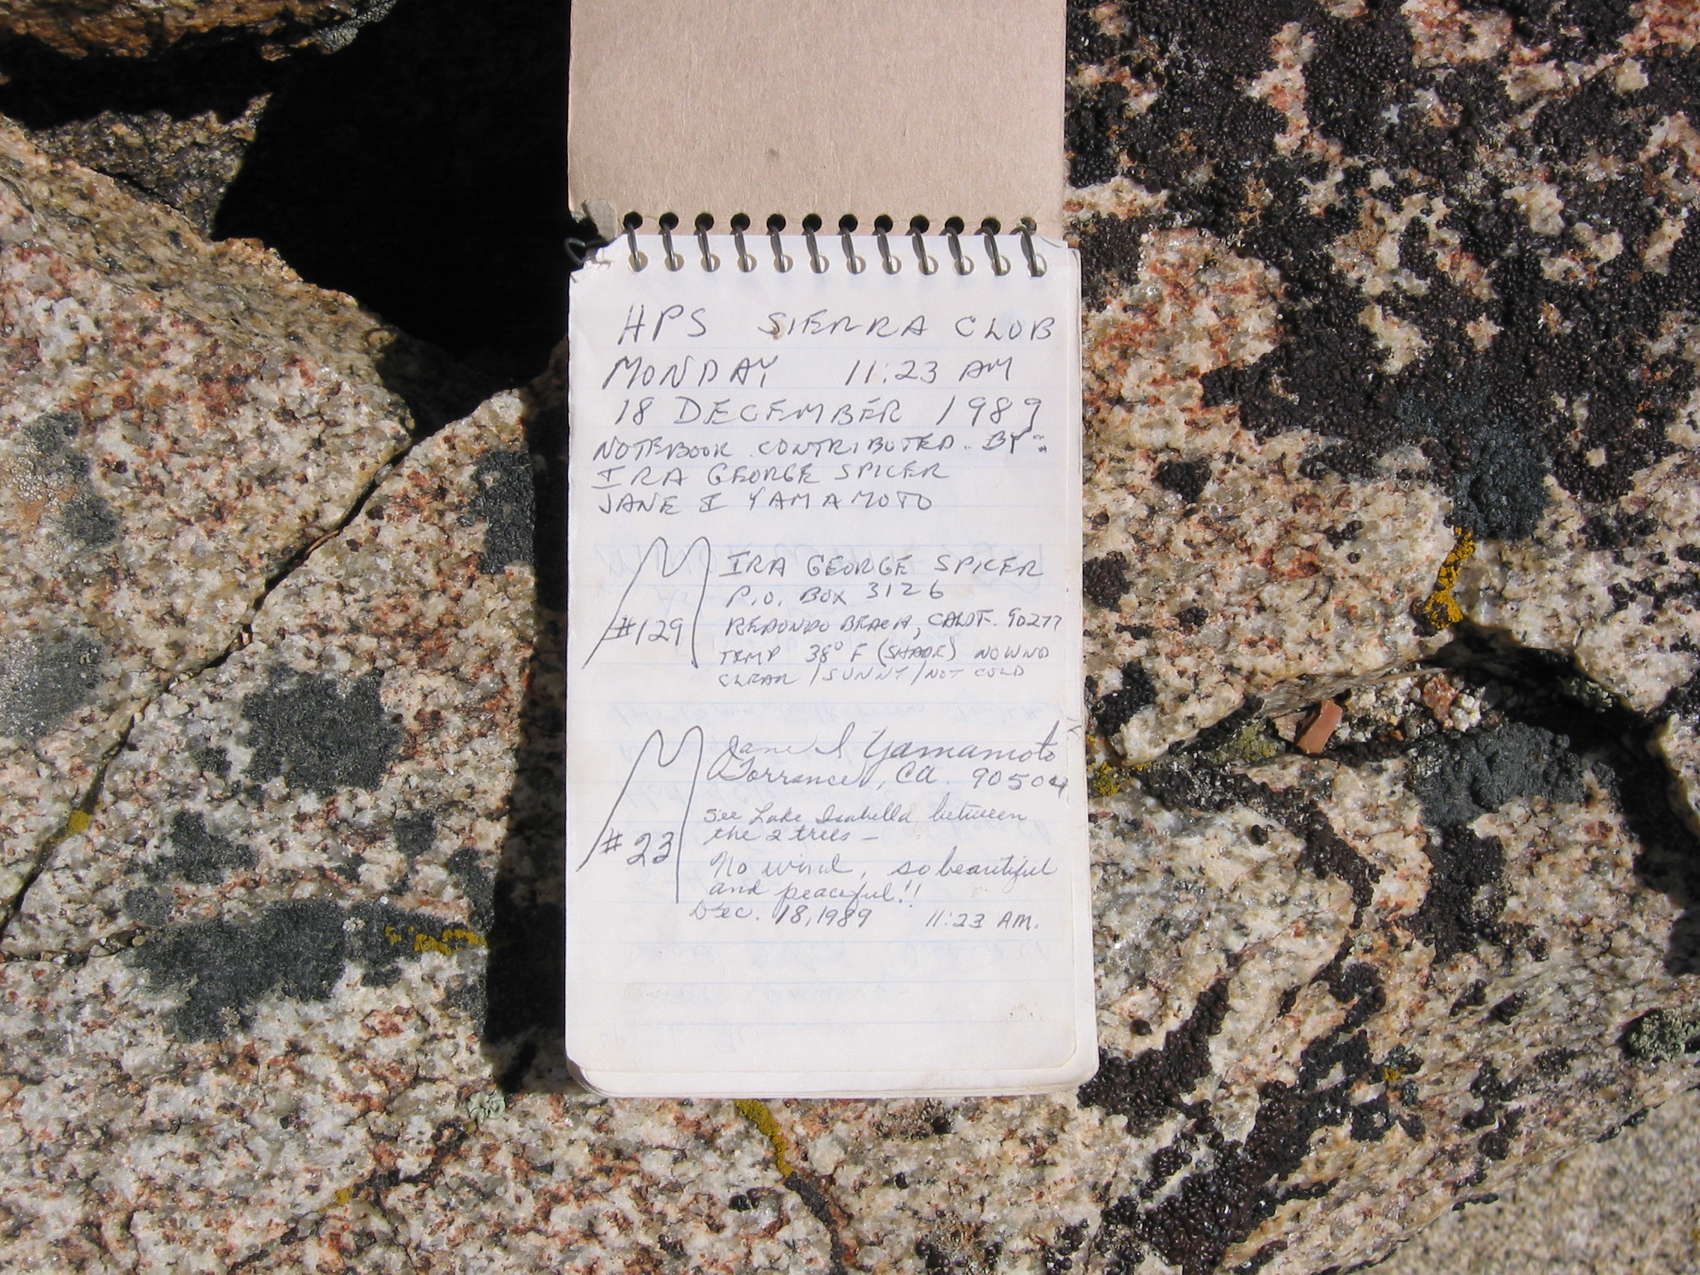 HPS SIERRA CLUB
MONDAY 11:23 AM
18 DECEMBER 1989
NOTEBOOK CONTRIBUTED BY:
IRA GEORGE SPICER
JANE I YAMAMOTO
IRA GEORGE SPICER
P.O. BOX 3126
#129 REDONDO BEACH, CALIF. 90277
TEMP 38° F (SHADE) NO WIND
CLEAR / SUNNY / NOT COLD
Jane I Yamamoto
Torrance, CA. 90504
See Lake Isabella between
the 2 trees -
#23 No wind, so beautiful
and peaceful!!
Dec. 18, 1989 11:23 AM.